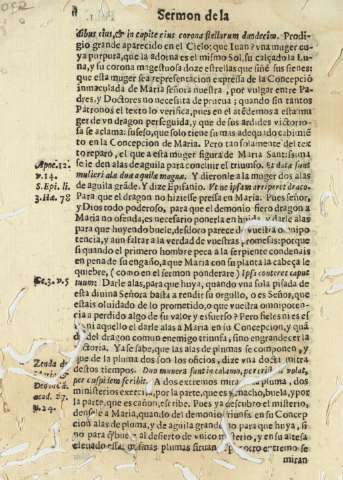 Sermon de la
dibus eius, & in capite eius corona stellarum duodecim. Prodi-
gio grande aparecido en el Cielo; que Iuan vna muger cu-
ya purpura, que la adorna es el mismo Sol, su calçado la Lu-
na, y su corona magestuosa doze estrellas que siñe sus sienes
que esta muger sea representacion expressa de la Concepció
inmaculada de Maria señora nuestra, por vulgar entre Pa-
dres, y Doctores no necesita de prueua; quando sin tantos
Patronos el texto lo verifica, pues en el atédemos a esta mu-
ger de vn dragon perseguida, y que de sus ardides victorio-
sa se aclama: suseso, que solo tiene su mas adequado cabimié-
to en la Concepcion de Maria. Pero tan solamente del tex-
to reparò, el que a esta muger figura de Maria Santissima
se le den alas de aguila para concluir el triunfo. Et datæ sunt
mulieri alæ duæ aquilæ magnæ. Y dieronle a la muger dos alas
de aguila gràde. Y dize Epifanio. Vt ne ipsam arriperet draco
Para que el dragon no hiziesse pressa en Maria. Pues señor,
y Dios todo poderoso, para que el demonio fiero dragon a
Maria no ofenda, es necesario ponerla en huida, y darle alas
para que huyendo buele, desdoro parece de vuestra omnipo-
tencia, y aun faltar a la verdad de vuestras promesas: porque
si quando el primero hombre peca a la serpiente condenais
en pena de su engaño, a que Maria con su planta la cabeça le
quiebre, (como en el sermon ponderare) Ipsa conteret caput
tuum: Darle alas, para que huya, quando vna sola pisada de
esta diuina Señora basta a rendir su orgullo, o es Señor, que
estais oluidado de lo prometido, o que vuestra omnipoten-
cia a perdido algo de su valor y esfuerço? Pero fieles ni es es-
ni aquello el darle alas a Maria en su Concepcion, y quá
de del dragon comun enemigo triunfa, sino engrandecer la
ctoria. Ya se sabe, que las alas de plumas se componen, y
que de la pluma dos son los oficios, dize vna docta mitra
destos tiempos. Duo munera sunt in calamo, per volat,
per cuspidem scribit. A dos extremos mira pluma, dos
ministerios exercita, por la parte, que es penacho, buela, y por
la parte, que es cañon, escribe. Pues ya descubro el misterio,
densele a Maria, quando del demonio triunfa en su Concep-
cion alas de pluma, y de aguila grande, no para que huya, si
no para q̃ buele al desierto de vnico misterio, y en su alteza
eleuado estas mismas plumas siruan de otro extremo se
miran
Apoc. 12.
v. 14.
S. Epi. li.
3. Hæ. 78
Ge. 3. v. 5
Zerda de
acad. 27.
v. 24.